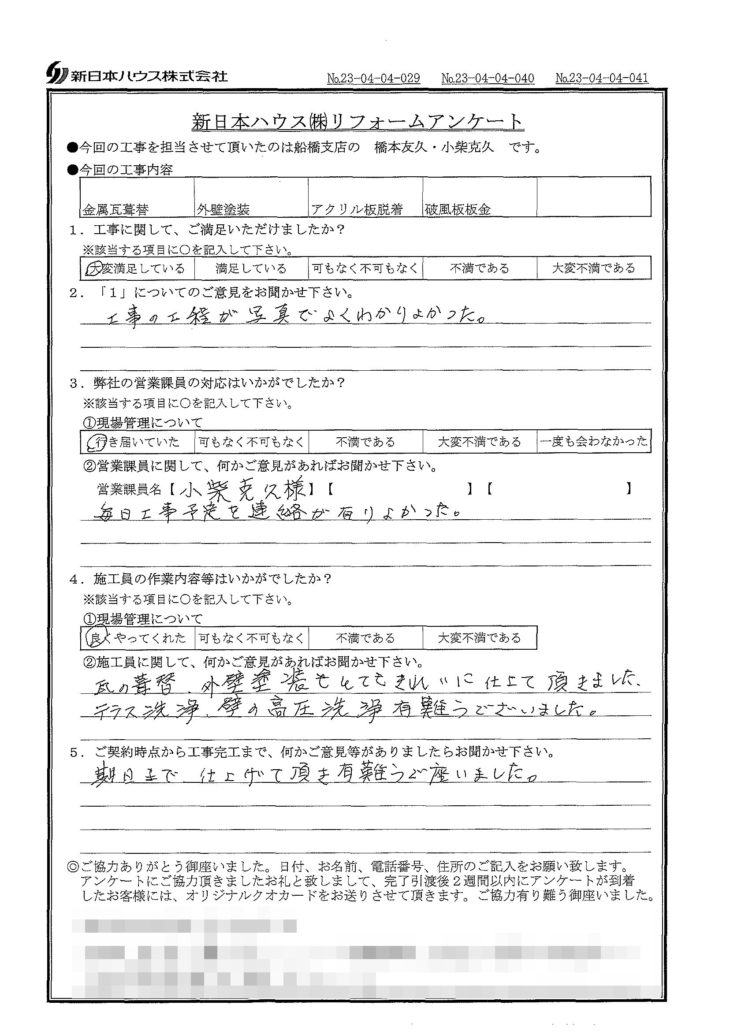 新日本ハウス株式会社 №23-04-04-029 №23-04-04-040 №23-04-04-041
新日本ハウス㈱リフォームアンケート
●今回の工事を担当させて頂いたのは船橋支店の 橋本友久・小柴克久 です。
●今回の工事内容
金属瓦葺替 外壁塗装 アクリル板脱着 破風板板金
1．工事に関して、ご満足いただけましたか？
※該当する項目に○を記入して下さい。
大変満足している 満足している 可もなく不可もなく 不満である 大変不満である
2．「1」についてのご意見をお聞かせ下さい。
工事の工程が写真でよくわかりよかった。
3．弊社の営業課員の対応はいかがでしたか？
※該当する項目に○を記入して下さい。
①現場管理について
行き届いていた 可もなく不可もなく 不満である 大変不満である 一度も会わなかった
②営業課員に関して、何かご意見があればお聞かせ下さい。
営業課員名【小柴克久様】【 】【 】
毎日工事予定を連絡が有りよかった。
4．施工員の作業内容等はいかがでしたか？
※該当する項目に○を記入して下さい。
①現場管理について
良くやってくれた 可もなく不可もなく 不満である 大変不満である
②施工員に関して、何かご意見があればお聞かせ下さい。
瓦の葺替、外壁塗装もとてもきれいに仕上て頂きました、
テラス洗浄、壁の高圧洗浄有難うございました。
5．ご契約時点から工事完工まで、何かご意見等がありましたらお聞かせ下さい。
期日まで仕上げて頂き有難うご座いました。
◎ご協力ありがとう御座いました。日付、お名前、電話番号、住所のご記入をお願い致します。
アンケートにご協力頂きましたお礼と致しまして、完了引渡後２週間以内にアンケートが到着
したお客様には、オリジナルクオカードをお送りさせて頂きます。ご協力有り難う御座いました。